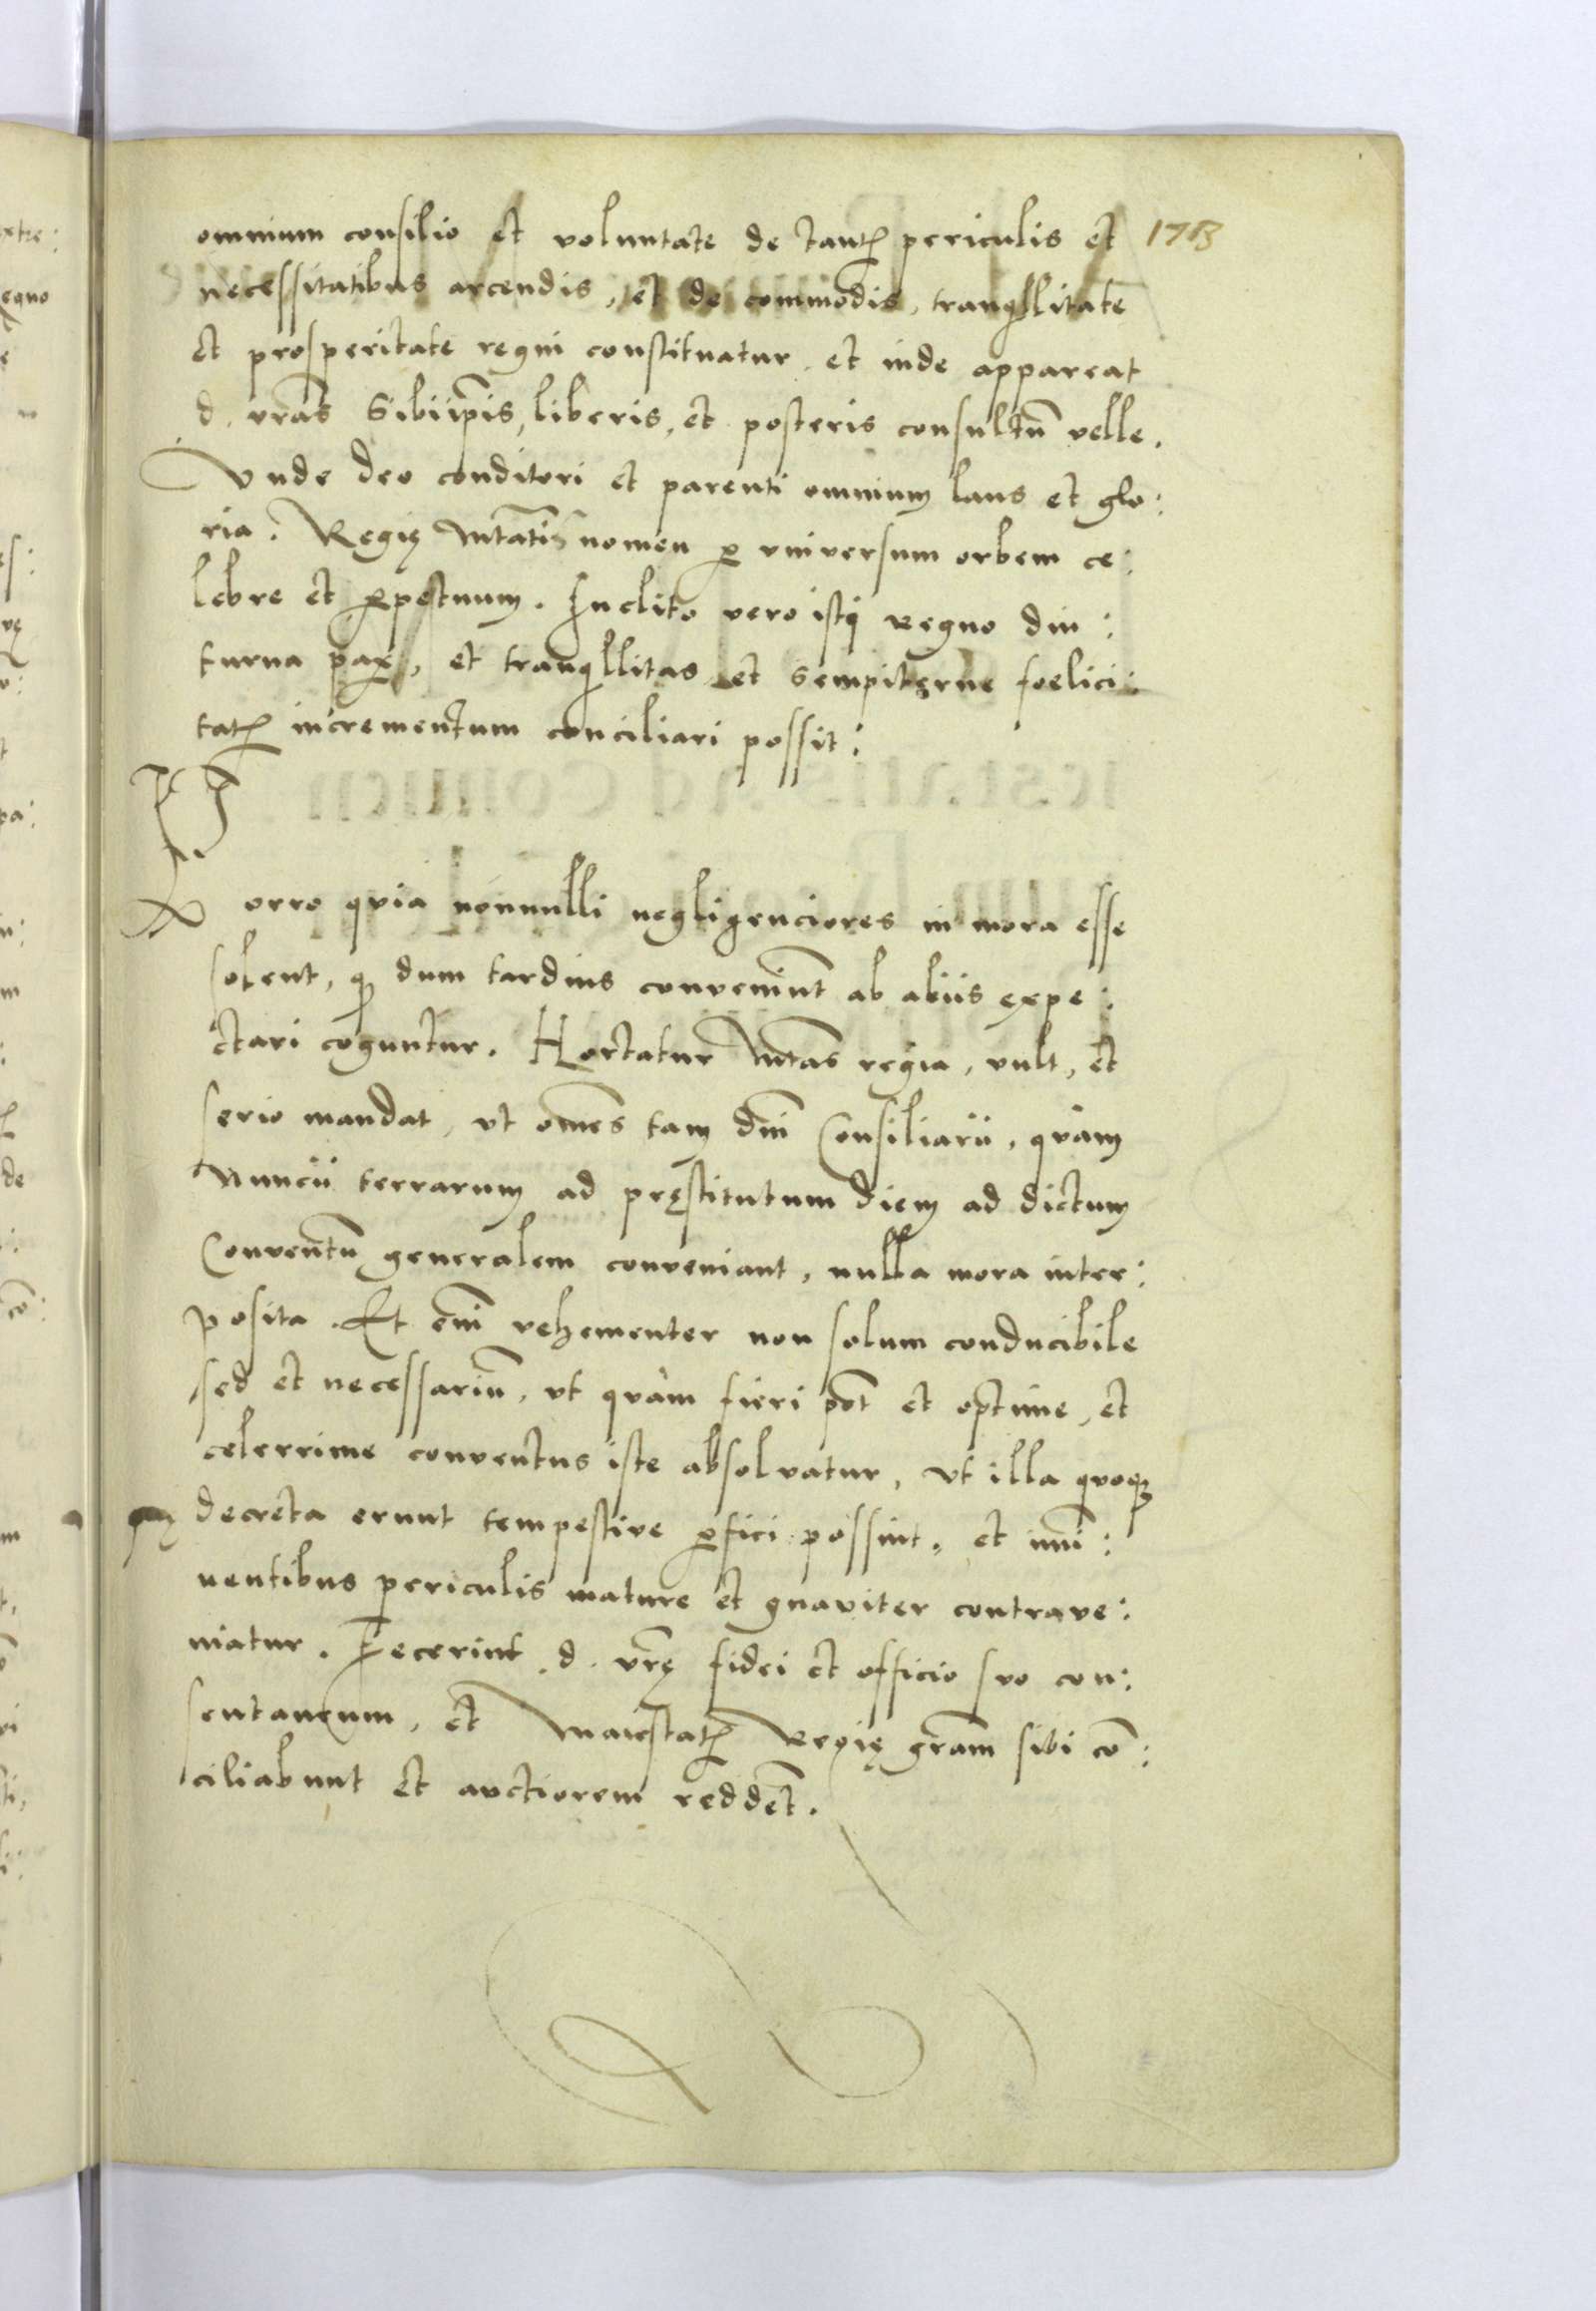 omnium consilio et voluntate de tantꝭ periculis et 1713
necessitatibus arcendis, et de commodis, tranqͥllitate
et prosperitate regni constituatur et inde appareat
d. vrãs sibiip̃is, liberis, et posteris consultũ velle.
Vnde deo conditori et parenti omnium laus et glo:
ria. Regię Mtãtis nomen ꝑ vniversum orbem ce:
lebre et ꝑpetuum. Inclito vero isti Regno diu:
turna pax, et tranqͥllitas et sempiterne foelici:
tatꝭ incrementum conciliari possit:
Porro qvia nonnulli negligenciores in mora esse
solent, qͥ dum tardius conveniũt ab aliis expe:
ctari coguntur. Hortatur Mtãs regia, vult, et
serio mandat, vt om̃es tam dñi Consiliarii, qvàm
Nuncii terrarum ad pręstitutum diem ad dictum
Conventũ generalem conveniant, nulla mora inter:
posita. Et em̃ vehementer non solum conducibile
sed et necessariũ, vt qvàm fieri põt et optime, et
celerrime conventus iste absolvatur, vt illa qvoqꝫ
quę decreta erunt tempestive ꝑfici possint, et im̃i:
nentibus periculis mature et gnaviter contrave:
niatur. Fecerint d. vrę̃ fidei et officio svo con:
sentaneum, et Maiestatꝭ Regię grãm sibi cõ:
ciliabunt et avctiorem reddẽt.